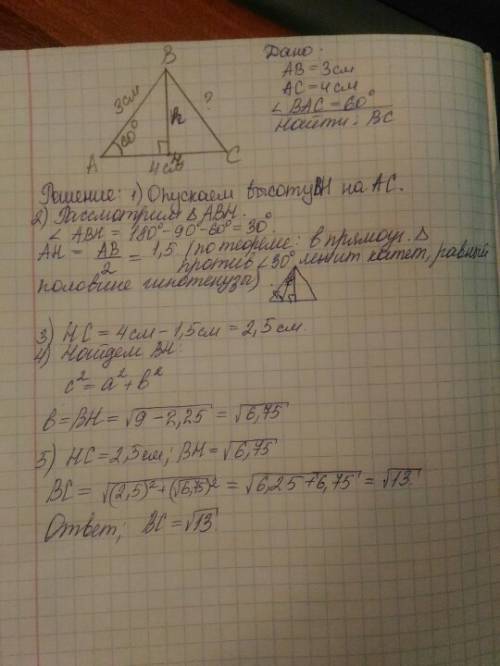 B
Дано:
3см
?
AB = 3см
AC = 4см
∠ BAC = 60°
Найти: BC
60°
h
A
H
C
4см
Решение: 1) Опускаем высоту BH на AC.
2) Рассмотрим △ ABH.
∠ ABH = 180° - 90° - 60° = 30°
AH = AB/2 = 1,5 (по теореме: в прямоуг. △
против ∠30° лежит катет, равный
половине гипотенузы).
3) HC = 4см - 1,5см = 2,5см
4) Найдем BH:
c² = a² + b²
b = BH = √9 - 2,25 = √6,75
5) HC = 2,5см; BH = √6,75
BC = √(2,5)² + (√6,75)² = √6,25 + 6,75 = √13
Ответ: BC = √13